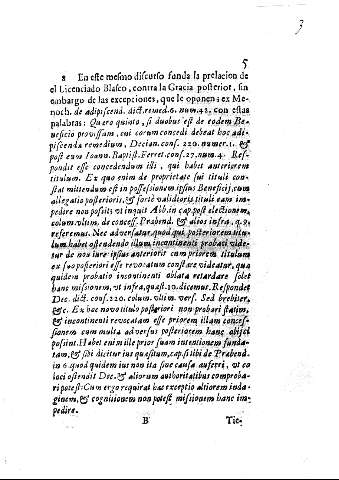 3
5
8 En este mesmo discurso funda la prelacion de
el Licenciado Blasco, contra la Gracia posterior, sin
embargo de las excepciones, que le oponen: ex Me-
noch. de adipiscend. dict. remed. 6. num. 42. con estas
palabras: Quæro quinto, si duobus est de eodem Be-
neficio provissum, cui eorum concedi debeat hoc adi-
piscenda remedium, Decian. cons. 220. numer. 1. &
post eum Ioann. Baptist. Ferret. cons. 27. num. 4. Res-
pondit esse concedendum illi, qui habet anteriorem
titulum. Ex quo enim de proprietate sui tituli con-
stat mittendum est in possessionem ipsius Beneficij, cum
allegatio posterioris, & forte validioris tituli eam im-
pedire non possit, vt inquit Abb. in cap. post electionem,
colum. vltim. de concess. Præbend. & alios infra, q. 9.
referemus. Nec adversatur, quod qui posteriorem titu-
lum habet ostendendo illum incontinenti probaci vide-
tur de non iure ipsius anterioris cum priorem titulum
ex suo posteriori esse revocatum constare videatur, qua
quidem probatio incontinenti oblata retardare solet
hanc missionem, vt infra, quæst. 10. dicemus. Respondet
Dec. dict. cons. 220. colum. vltim. vers. Sed breviter,
&c. Ex hac novo titulo posteriori non probari statim,
& incontinenti revocatum esse priorem illam conces-
sionem cum multa adversus posteriorem hanc obijci
possint. Habet enim ille prior suam intentionem funda-
tam, & sibi dicitur ius quæsitum, cap. si tibi de Præbend.
in 6. quod quidem ius non ita sine causa auferri, vt co
loci ostendit Dec. & aliorum authoritatibus comproba-
ri potest: Cum ergo requirat hæc exceptio altiorem inda-
ginem, & cognitionem non potest missionem hanc im-
pedire.
B Tie-